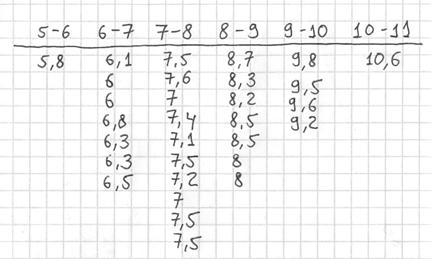 5-6 6-7 7-8 8-9 9-10 10-11
5,8 6,1 7,5 8,7 9,8 10,6
6 7,6 8,3 9,5
6 7 8,2 9,6
6,8 7,4 8,5 9,2
6,3 7,1 8,5
6,3 7,5 8
6,5 7,2 8
7
7,5
7,5